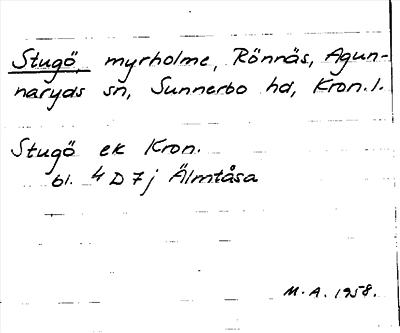 Stugö, myrholme, Rönnäs, Agun-
naryds sn, Sunnerbo hd, Kron. l.
Stugö ek Kron.
bl. 4 D 7 j Älmtåsa
M. A. 1958.